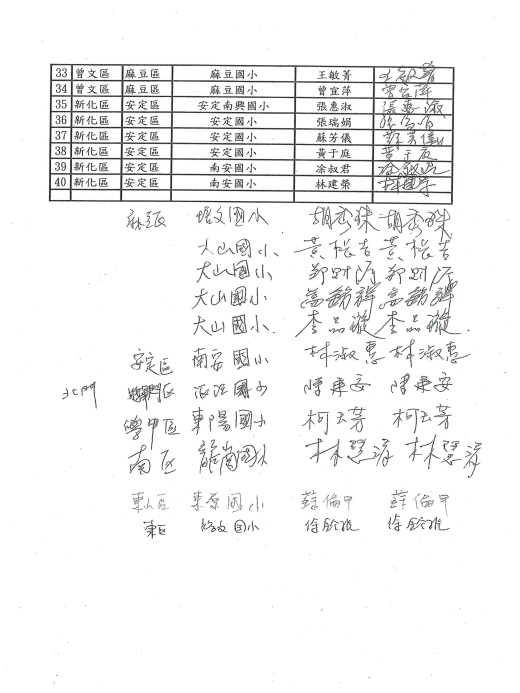 33 曾文區 麻豆區 麻豆國小 王敏菁 王敏菁
34 曾文區 麻豆區 麻豆國小 曾宜萍 曾宜萍
35 新化區 安定區 安定南興國小 張惠淑 張惠淑
36 新化區 安定區 安定國小 張瑞娟
37 新化區 安定區 安定國小 蘇芳儀 蘇芳儀
38 新化區 安定區 安定國小 黃于庭 黃于庭
39 新化區 安定區 南安國小 涂叔君
40 新化區 安定區 南安國小 林建榮
麻豆區 培文國小 胡秀珠 胡秀珠
大山國小 黃 吉 黃 吉
大山國小 鄭 鄭
大山國小
大山國小 李品漩 李品漩
安定區 南安國小 林淑惠 林淑惠
北門 區 國小 陳 安 陳 安
學甲區 東陽國小 柯 芳 柯 芳
南區 龍崗國小 林慧 林慧
東山區 東原國小 蘇倫甲 蘇倫甲
東區 國小 徐 徐